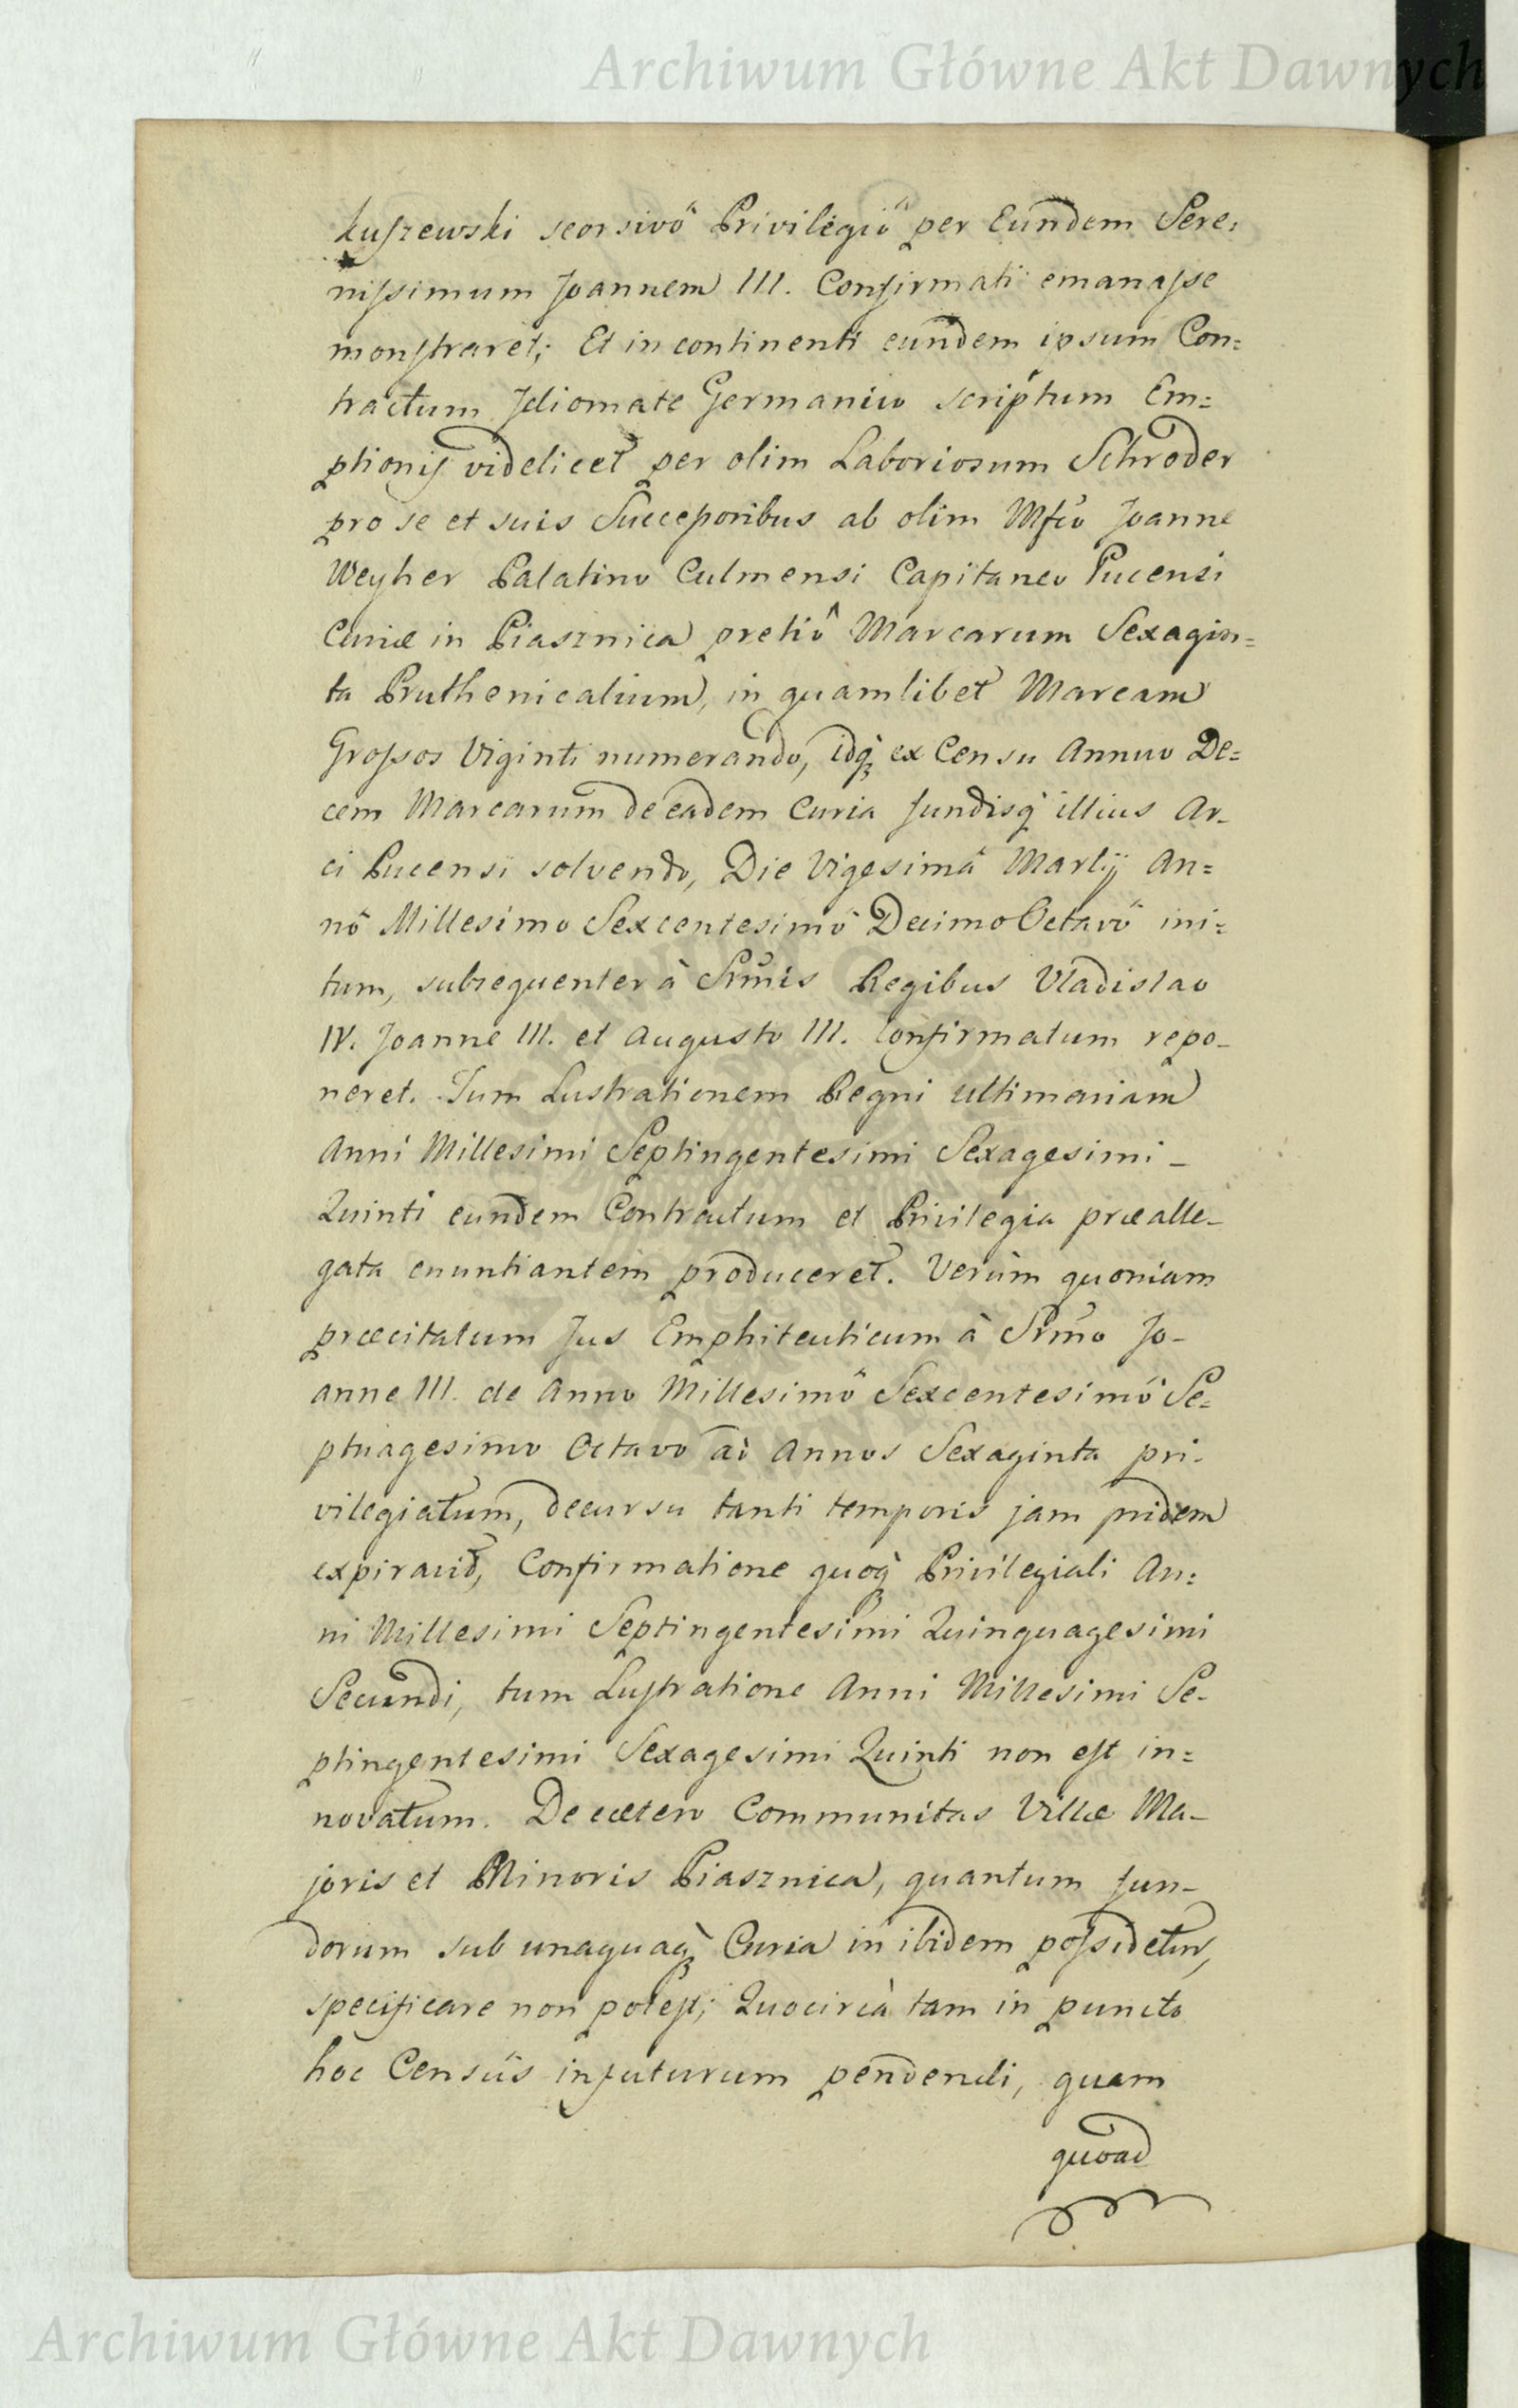 Archiwum Główne Akt Dawnych
kuszewski seorsivô Privilegiô per Eundem Sere:
nissimum Joannem III. Confirmati emanasse
monstraret; Et in continenti eundem ipsum Con:
tractum Jdiomate Germanico scriptum Em:
ptionis videlicet per olim Laboriosum Schroder
pro se et suis Successoribus ab olim Mfco Joanne
Weyher Palatino Culmensi Capitaneo Pucensi
Curiæ in Piasznica pretiô Marcarum Sexagin:
ta Pruthenicalium, in quamlibet Marcam
Grossos Viginti numerando, idq; ex Censu Annuo De:
cem Marcarum de eadem Curia fundisq illius Ar-
ci Pucensi solvendo, Die Vigesimâ Martij An:
nô Millesimo Sexcentesimô Decimo Octavô ini:
tum, subsequenter à Srmis Regibus Vladislao
IV. Joanne III. et Augusto III. confirmatum repo-
neret. Tum Lustrationem Regni ultimariam
Anni Millesimi Septingentesimi Sexagesimi -
Quinti eundem Contractum et Privilegia præalle-
gata enuntiantem produceret. Verùm quoniam
præcitatum Jus Emphiteuticum à Srmo Jo-
anne III. de Anno Millesimô Sexcentesimô Se:
ptuagesimo Octavo ad Annos Sexaginta pri-
vilegiatum, decursu tanti temporis jam pridem
expiravit, Confirmatione quoq Privilegiali An:
ni Millesimi Septingentesimi Quinquagesimi
Secundi, tum Lustratione Anni Millesimi Se-
ptingentesimi Sexagesimi Quinti non est in:
novatum. De cætero Communitas Villæ Ma-
joris et Minoris Piasznica, quantum fun-
dorum sub unaquaq; Curia in ibidem possidetur,
specificare non potest; Quocircà tam in puncto
hoc Censûs in futurum pendendi, quam
quoad
Archiwum Główne Akt Dawnych